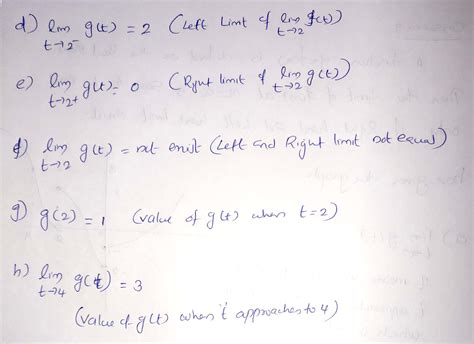 d) lim g(t) = 2 (Left Limt of lim g(t))
t→2⁻ t→2
e) lim g(t) = 0 (Right limit of lim g(t))
t→2+ t→2
f) lim g(t) = not exist (Left and Right limit not equal)
t→2
g) g(2) = 1 (value of g(t) when t=2)
h) lim g(t) = 3
t→4
(value of g(t) when t approaches to 4)